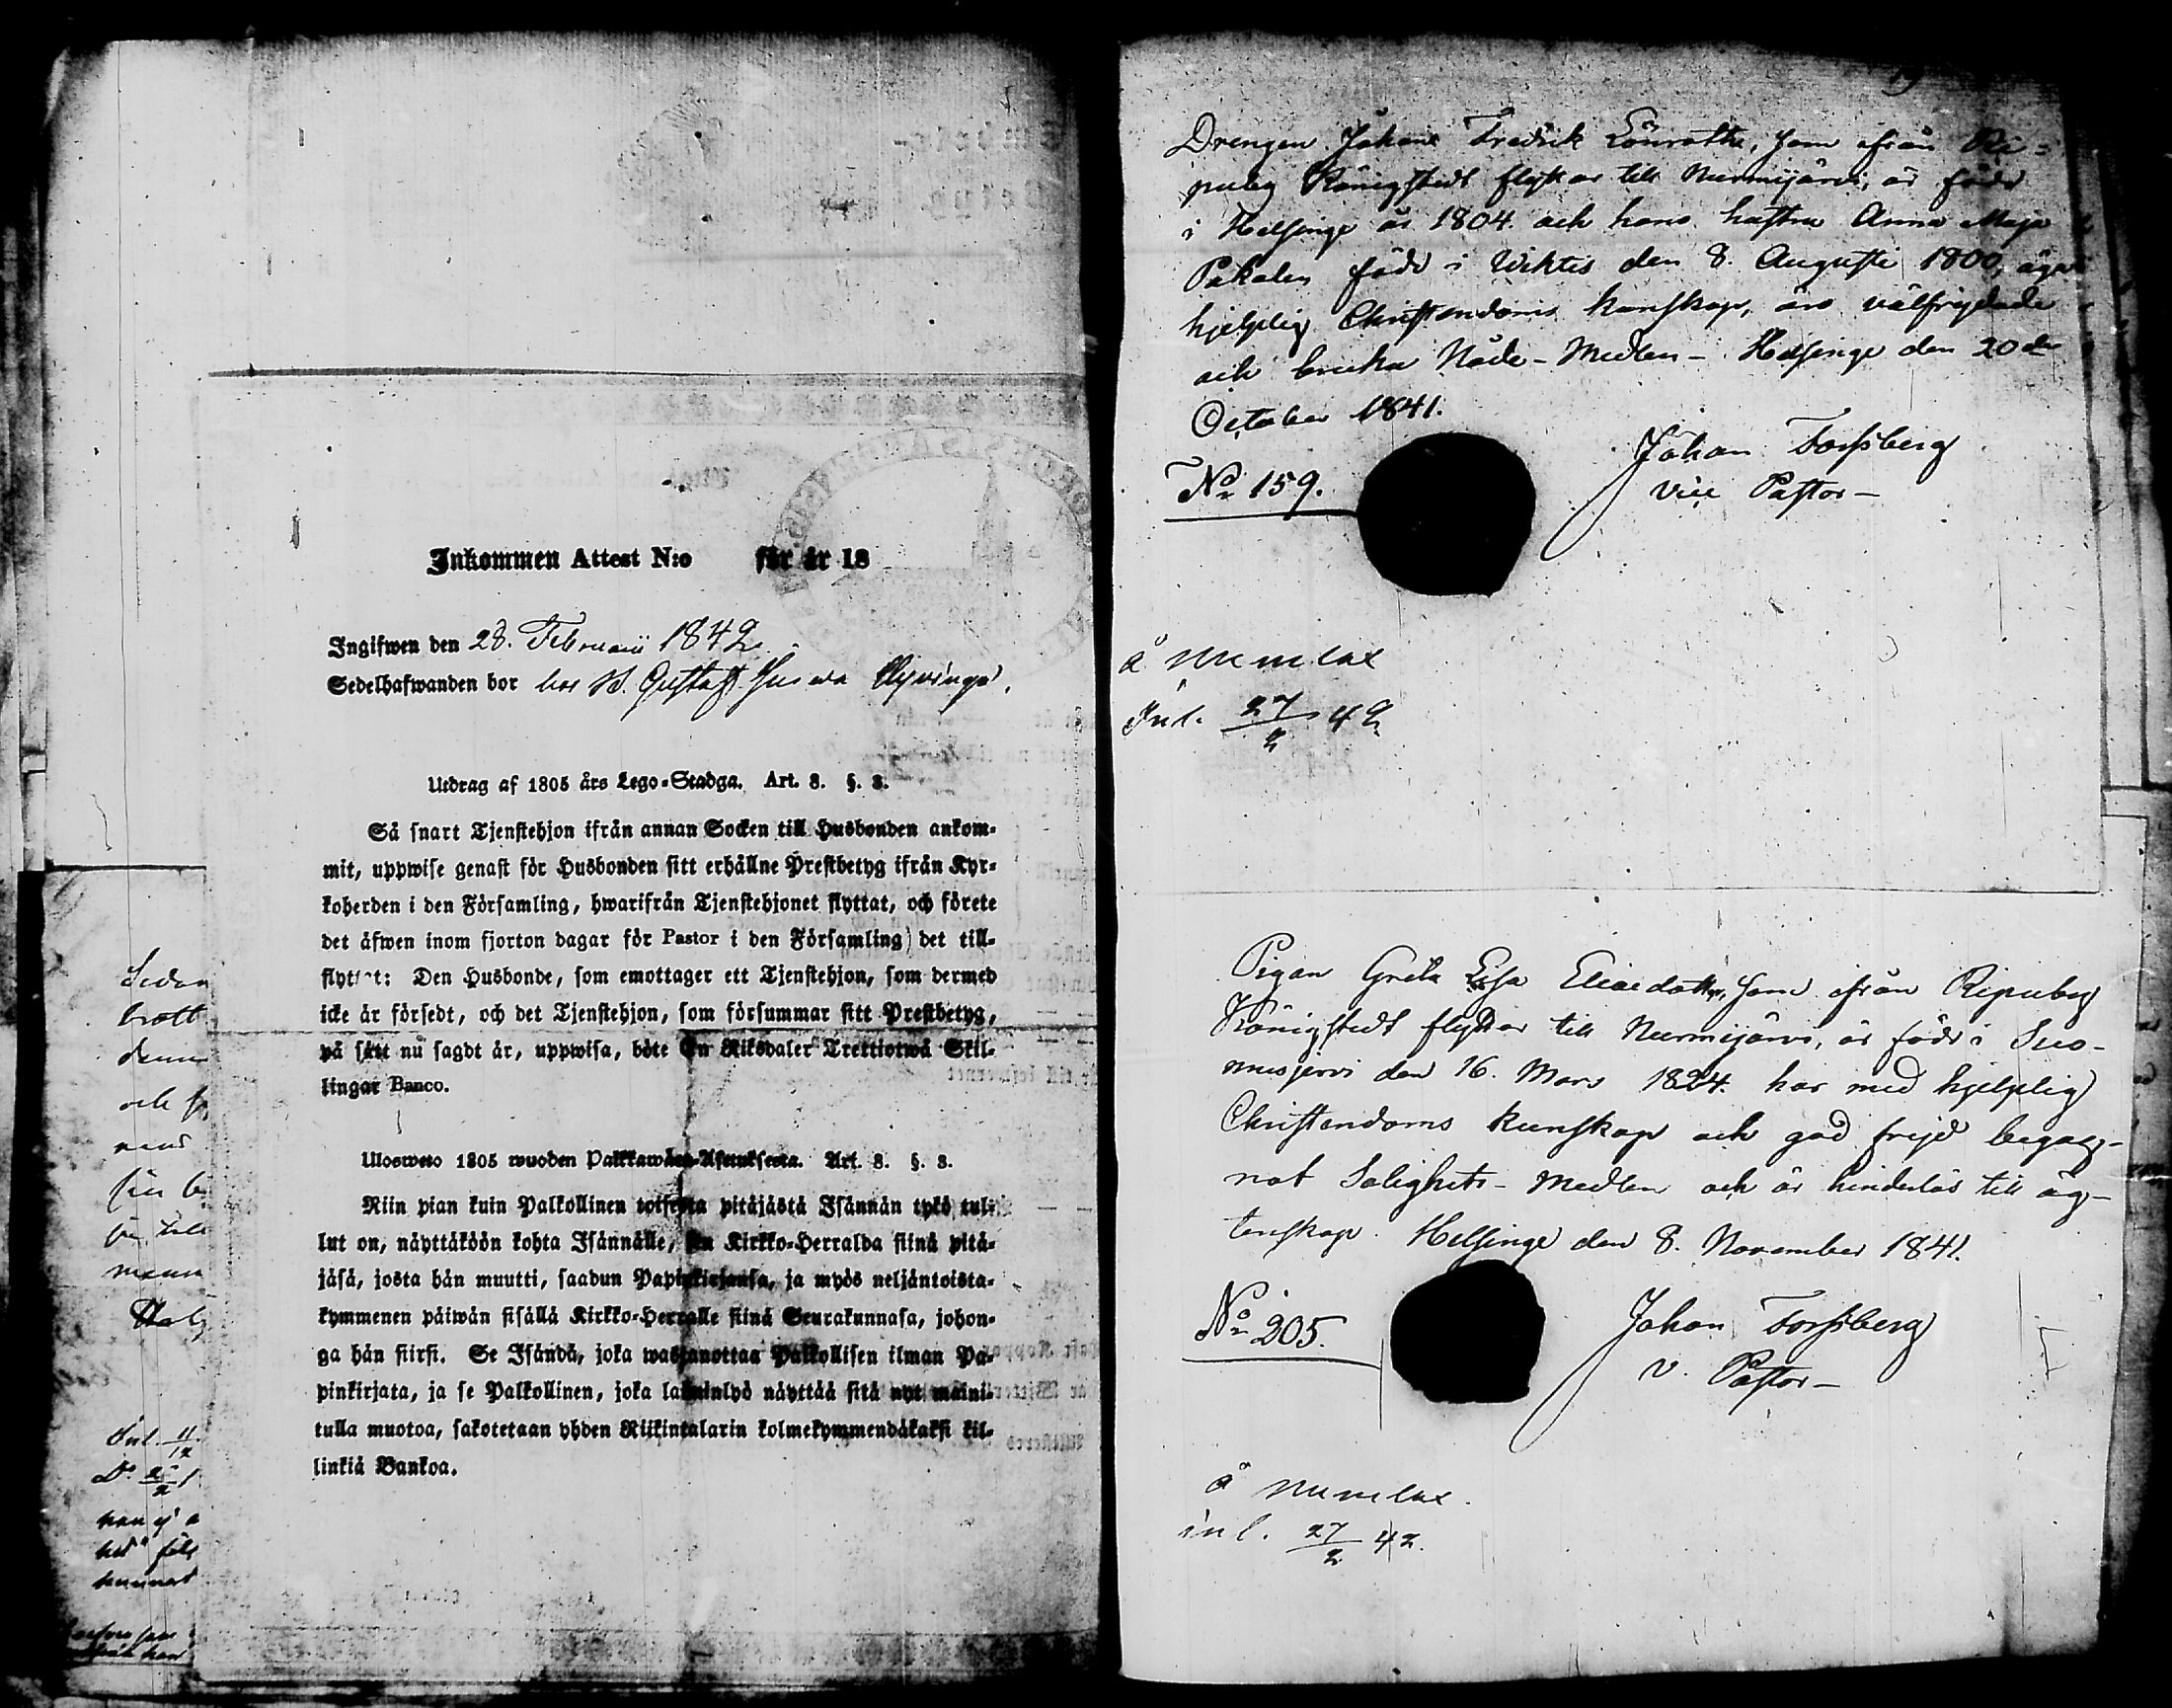 Inkommen Attest N:o för år 18
Ingifwen den 28. Februarii 1842
Sedelhafwanden bor hos B. Gustaf Hyvinge.
Utdrag af 1805 års Lego-Stadga. Art. 8. §. 3.
Så snart Tjenstehjon ifrån annan Socken till Husbonden ankom-
mit, uppwise genast för Husbonden sitt erhållne Prestbetyg ifrån Kyr-
koherden i den Församling, hwarifrån Tjenstehjonet flyttat, och förete
det äfwen inom fjorton dagar för Pastor i den Församling det till-
flyttat: Den Husbonde, som emottager ett Tjenstehjon, som dermed
icke är försedt, och det Tjenstehjon, som försummar sitt Prestbetyg,
på sätt nu sagdt är, uppwisa, böte En Riksdaler Trettiotwå Skil-
lingar Banco.
Ulosweto 1805 wuoden Palkkawäen-Asetuksesta. Art. 8. §. 3.
Niin pian kuin Palkollinen toisesta pitäjästä Isännän tykö tul-
lut on, näyttäköön kohta Isännälle, sen Kirkko-Herralda siinä pitä-
jäsä, josta hän muutti, saadun Papinkirjansa, ja myös neljäntoista-
kymmenen päiwän sisällä Kirkko-Herralle siinä Seurakunnasa, johon-
ga hän siirsi. Se Isändä, joka wastanottaa Palkollisen ilman Pa-
pinkirjata, ja se Palkollinen, joka laiminlyö näyttää sitä nyt maini-
tulla muotoa, sakotetaan yhden Riikintalarin kolmekymmendäkaksi kil-
linkiä Bankoa.
Drengen Johan Fredrik Lönroth, som ifrån Ri-
puby Königstedt flyttar till Nurmijärvi, är född
i Helsinge år 1804. och hans hustru Anna Maja
Pakalen född i Wichtis den 8. Augusti 1800, äga
hjelplig Christendoms kunskap, äro välfrejdade
och bruka Nåde-Medlen - Helsinge den 20de
October 1841.
Johan Forssberg
Vice Pastor -
No 159.
å Numlax
Inl. 27/2 42
Pigan Greta Lisa Eliaedotter, som ifrån Ripuby
Königstedt flyttar till Nurmijärvi, är född i Suo-
musjervi den 16. Mars 1824. har med hjelplig
Christendoms kunskap och god frejd begag-
nat Salighets-Medlen och är hinderlös till äg-
tenskap. Helsinge den 8. November 1841.
No 205.
Johan Forssberg
v. Pastor -
å Numlax.
inl. 27/2 42.